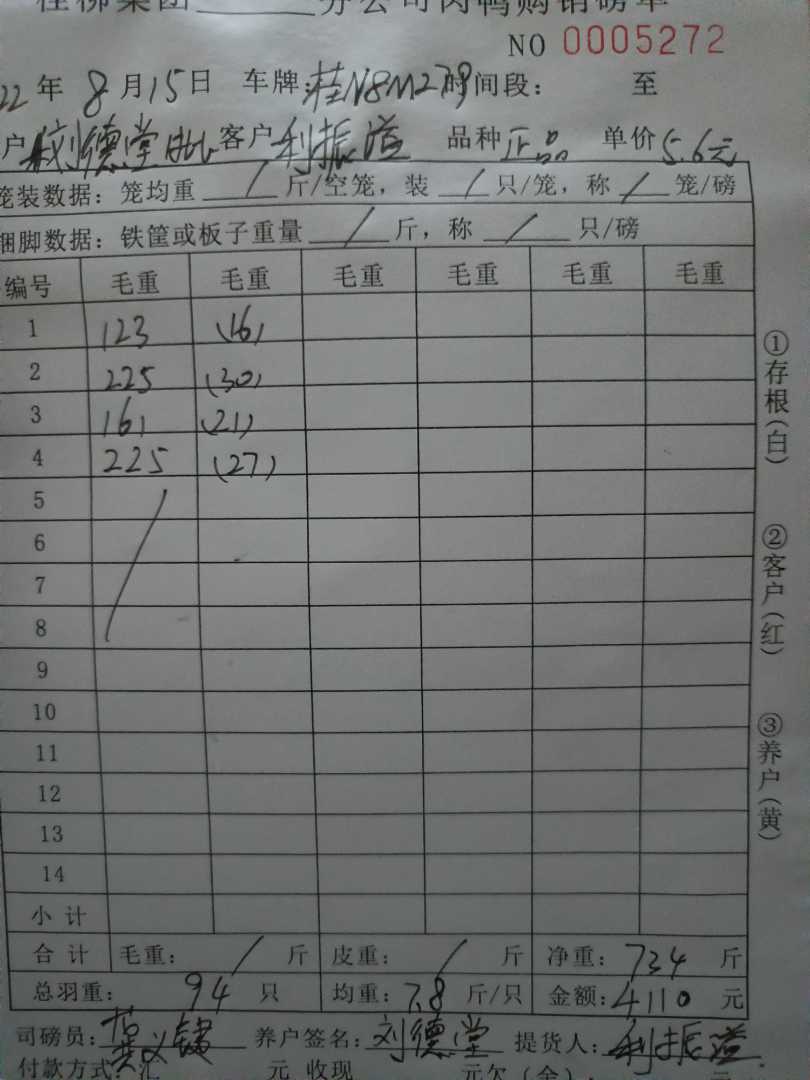 桂柳集团______分公司肉鸭购销磅单
NO 0005272
22年8月15日 车牌:桂N8M279 时间段: 至
户 刘德堂 客户 利振溢 品种 正品 单价 5.6元
笼装数据: 笼均重 / 斤/空笼, 装 / 只/笼, 称 / 笼/磅
捆脚数据: 铁筐或板子重量 / 斤, 称 / 只/磅
编号 毛重 毛重 毛重 毛重 毛重 毛重
1 123 (16)
2 225 (30)
3 161 (21)
4 225 (27)
5
6
7
8
9
10
11
12
13
14
小计
合计 毛重: / 斤 皮重: / 斤 净重: 734 斤
总羽重: 94 只 均重: 7.8 斤/只 金额: 4110 元
司磅员: 养户签名: 刘德堂 提货人: 利振溢
付款方式: 汇 元 收现 元欠(余)
①存根(白)
②客户(红)
③养户(黄)